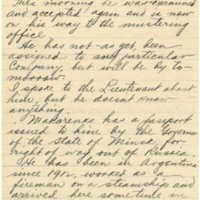 This morning he was examined
and accepted again and is now
on his way to the mustering
office
He has not as yet, been
assigned to any particular
Company but will be by to-
morrow.
I spoke to the Lieutenant about
him, but he doesnt know
anything.
Makarenko has a passport
issued to him by the Governor
of the State of Minsk, for
right of way out of Russia.
He has been in Argentina
since 1912, worked as a
fireman on a steamship and
arrived here sometime in